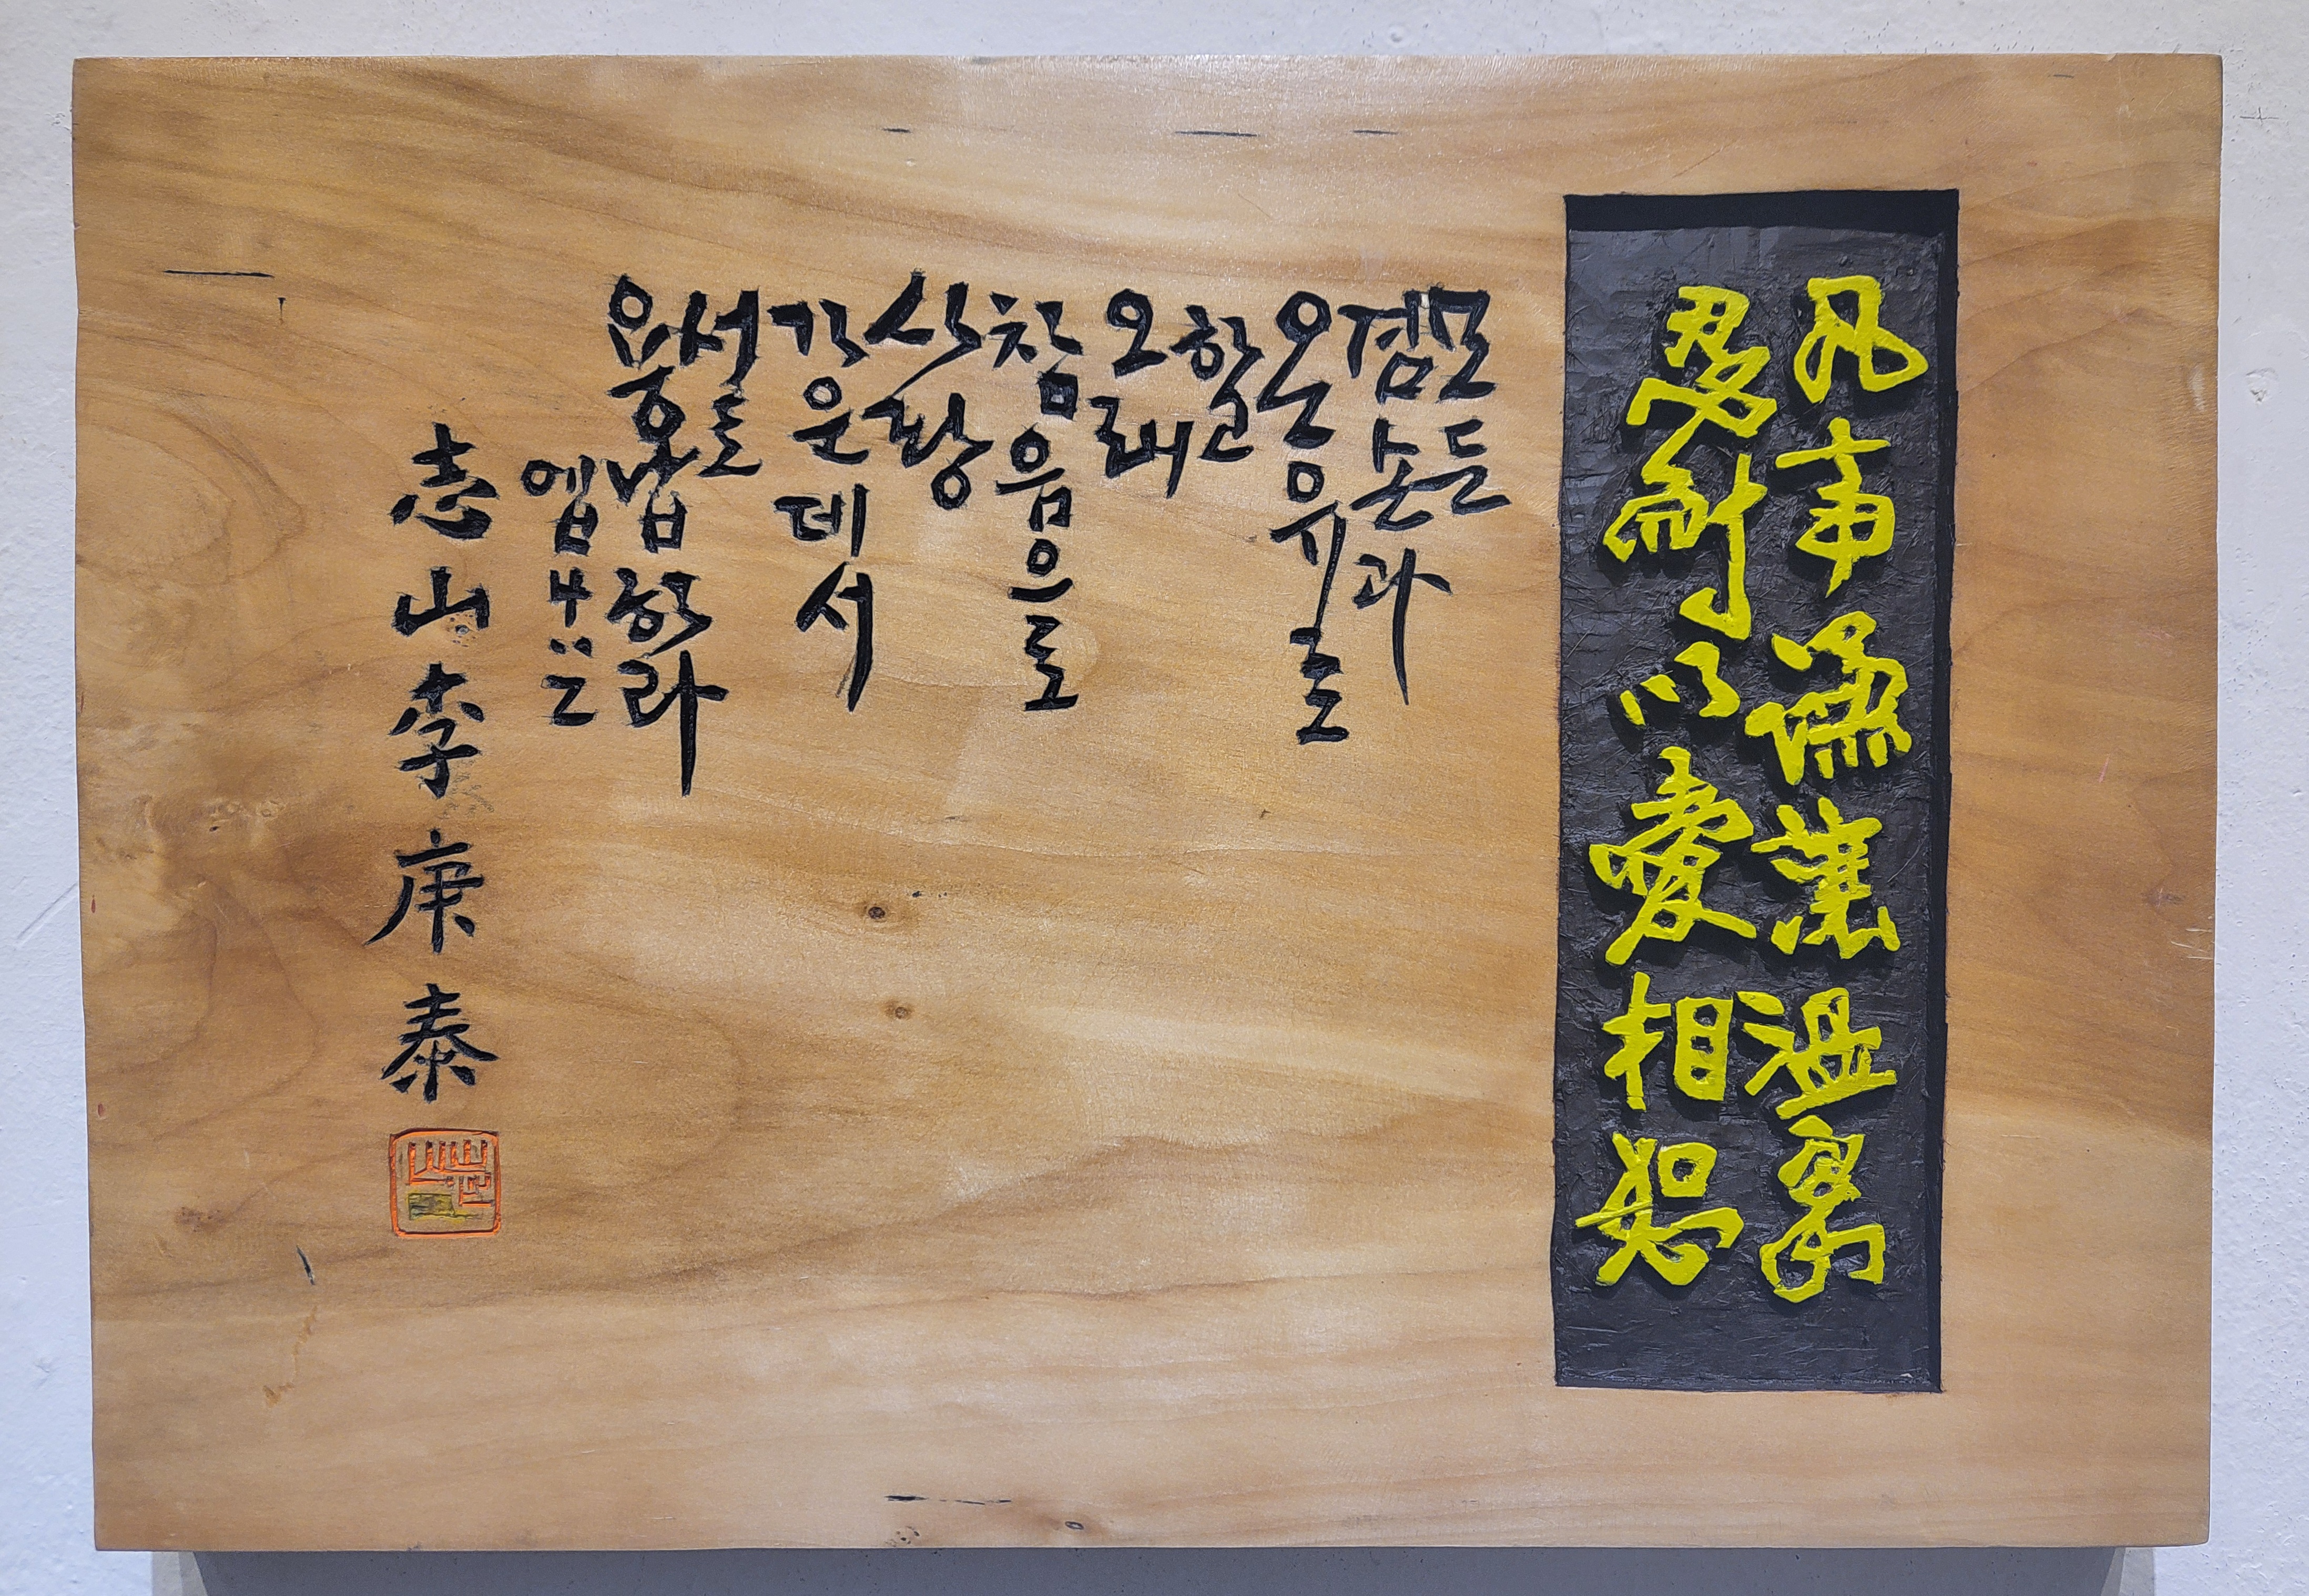 凡事謙讓溫
忍耐以愛相恕
모든
겸손과
온유로
하고
오래
참음으로
사랑
가운데서
서로
용납하라
엡4:2
志山李庚泰